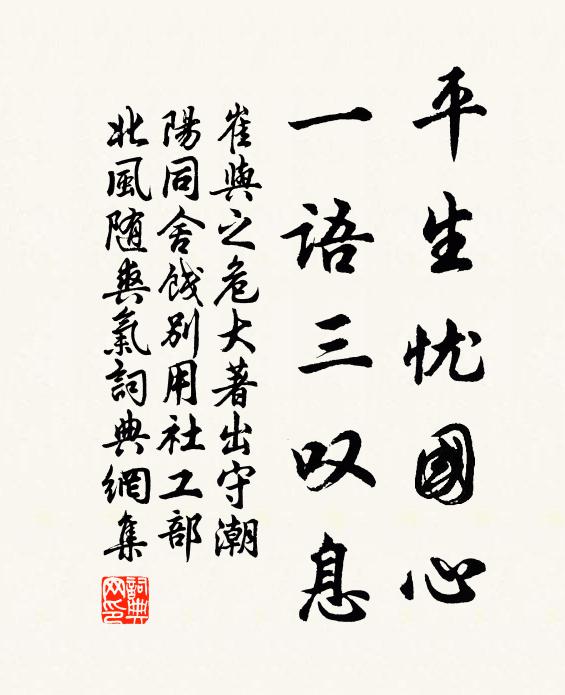 平生忧國心
一语三叹息
崔與之危大著出守潮
陽同舍餞別用社工部
北風随爽氣詞典網集
詞典网印